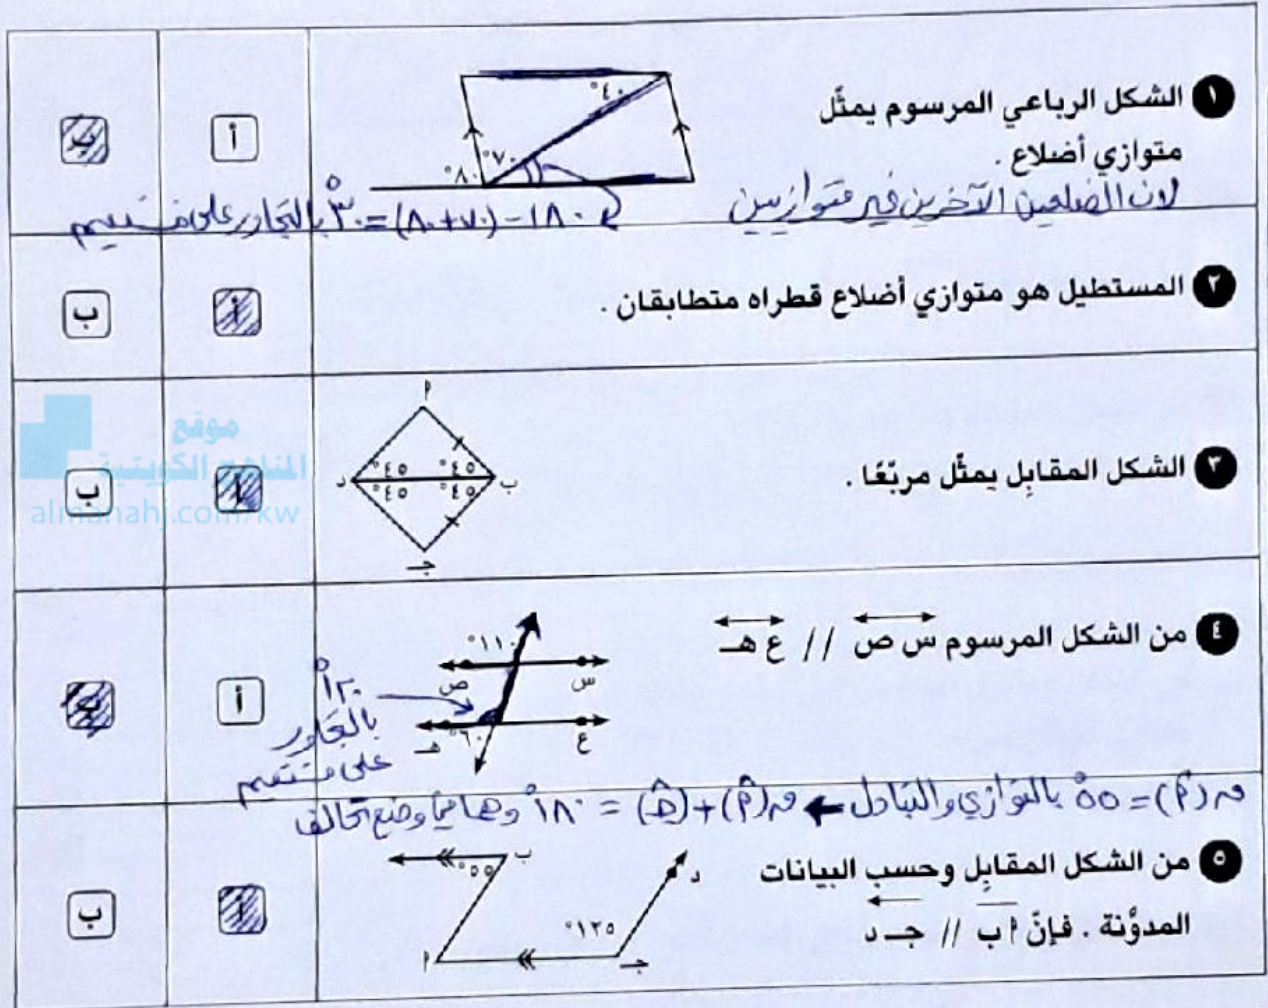 ١ الشكل الرباعي المرسوم يمثّل
متوازي أضلاع .
٤٠°
٧٠°
٨٠°
أ
ب
لان الضلعين الآخرين غير متوازيين
١٨٠ - (٨٠+٧٠) = ٣٠° بالتجاور على مستقيم
٢ المستطيل هو متوازي أضلاع قطراه متطابقان .
أ
ب
٣ الشكل المقابِل يمثّل مربّعًا .
م
٤٥° ٤٥°
ب د
٤٥° ٤٥°
جـ
أ
ب
موقع
المناهج الكويتية
almanahj.com/kw
٤ من الشكل المرسوم س ص // ع هـ
١١٠°
س ص
ع هـ
٦٠°
١٢٠°
بالتجاور
على مستقيم
أ
ب
ق(م) = ٥٥° بالتوازي والتبادل ← ق(م) + (جـ) = ١٨٠° وهما في وضع تحالف
٥ من الشكل المقابِل وحسب البيانات
المدوَّنة . فإنّ م ب // جـ د
ب
٥٥°
د
١٢٥°
م
جـ
أ
ب